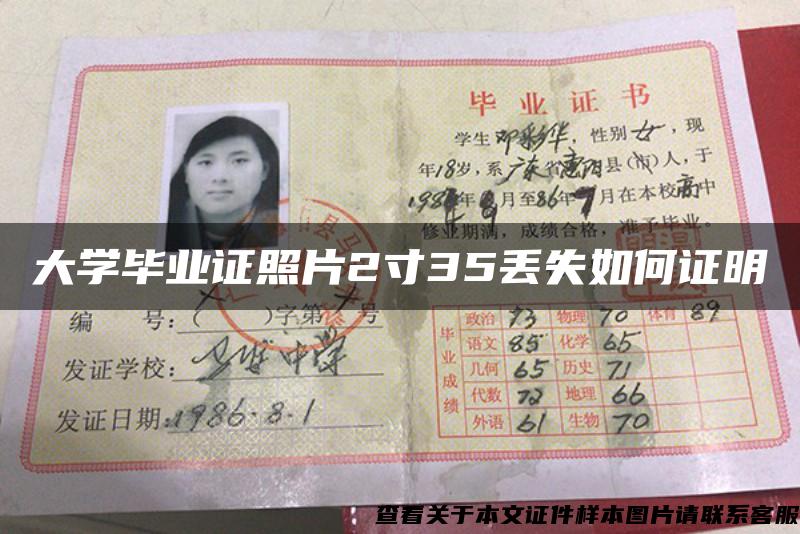 毕业证书
学生邓彩华，性别女，现
年18岁，系广东省惠阳县(市)人，于
月至86年7月在本校高中
修业期满，成绩合格，准予毕业。
大学毕业证照片2寸35丢失如何证明
编 号：( )字第 号
发证学校：
中学
发证日期：1986.8.1
毕业成绩
政治 73 物理 70 体育 89
语文 85 化学 65
几何 65 历史 71
代数 72 地理 66
外语 61 生物 70
查看关于本文证件样本图片请联系客服